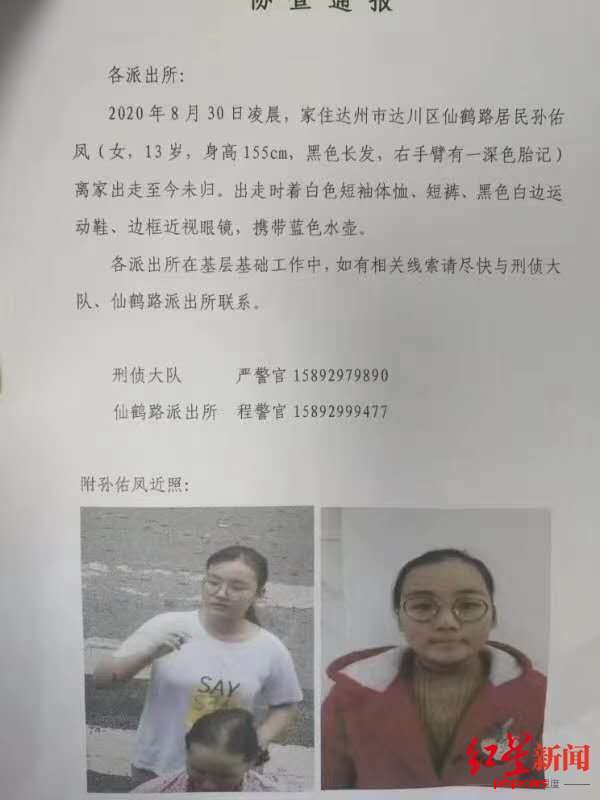 协查通报
各派出所：
2020年8月30日凌晨，家住达州市达川区仙鹤路居民孙佑
凤（女，13岁，身高155cm，黑色长发，右手臂有一深色胎记）
离家出走至今未归。出走时着白色短袖体恤、短裤、黑色白边运
动鞋、边框近视眼镜，携带蓝色水壶。
各派出所在基层基础工作中，如有相关线索请尽快与刑侦大
队、仙鹤路派出所联系。
刑侦大队 严警官 15892979890
仙鹤路派出所 程警官 15892999477
附孙佑凤近照：
SAY
红星新闻